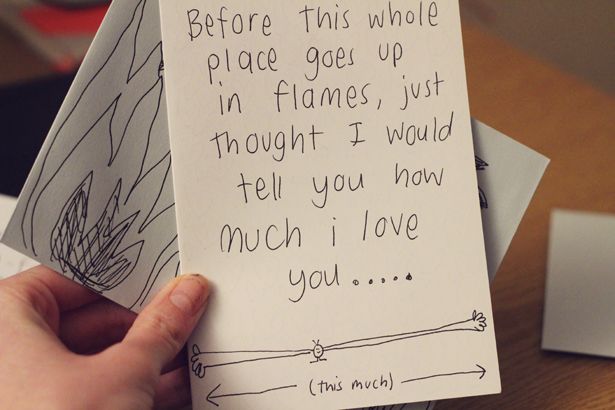 Before this whole
place goes up
in flames, just
thought I would
tell you how
much i love
you.....
(this much)